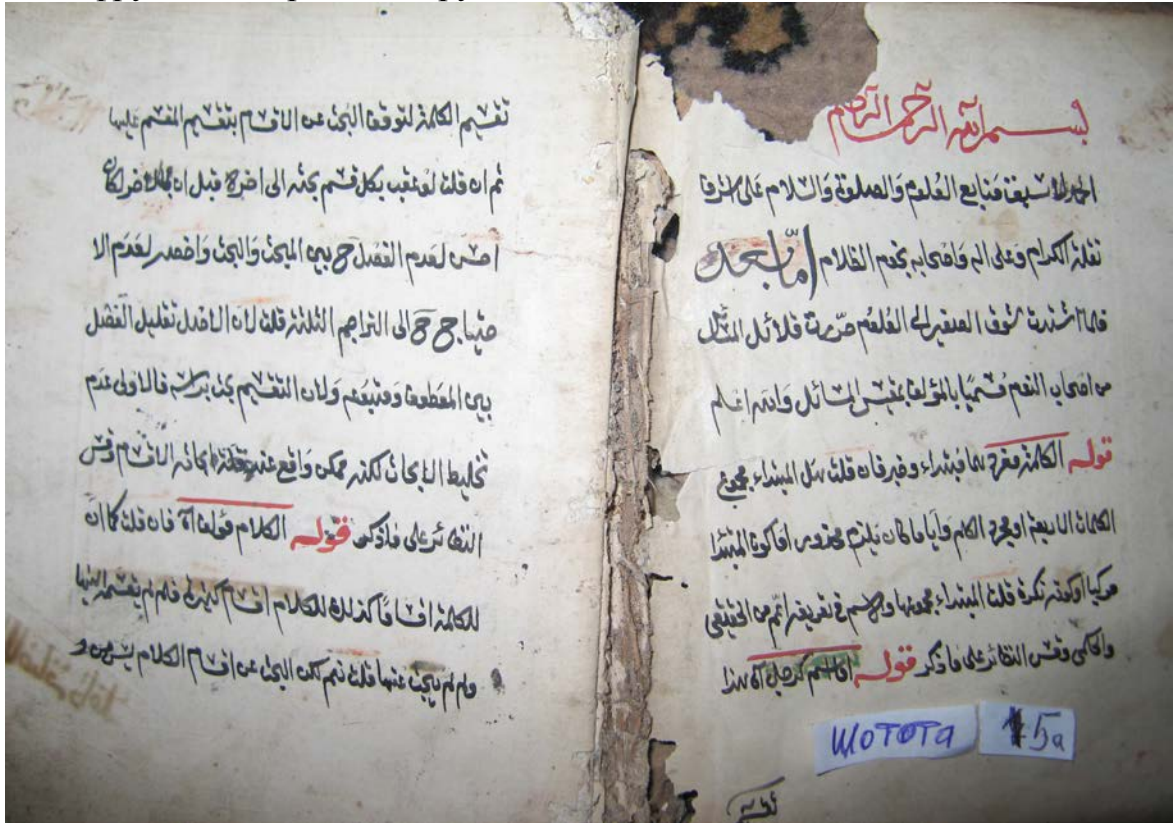 بسم الله الرحمن الرحيم
الحمد لله سبقت منابع العلوم والصلوة والسلام على اشرف
نقلة الكرام وعلى اله واصحابه نجوم الظلام اما بعد
فلما اشتدت شوق الصغير الى العلوم حررت قلائل
من اصحاب النعم المسائل والله اعلم
قوله الكلمة مفرد مبتداء وخبر فان قلت هل المبتداء مجموع
الكلمات الاربعة او مجرد الكلم وايا ما كان يلزم محذور اما كون المبتدا
مركبا او كونه نكرة قلت المبتداء مجموعها والاسم في تعريفه اعم من الحقيقي
والحكمي وقس النظائر على ما ذكر قوله اما اسم كرجل هذا
تقسيم
ШОТОТА 15а
تقسيم الكلمة لتوقف البحث عن الاقسام بتقسيم المقسم عليها
ثم ان قلت لو عقب بكل قسم بحثه الى اخره قبل ان الاخر لكان
احسن لعدم الفصل ح بين المبحث والبحث واخصر لعدم الا
حتياج ح الى التراجم الثلثة قلت لان الاصل تقليل الفصل
بين المعطوف ومتبوعه ولان التقسيم بحث براسه فالاولى عدم
تخليط الابحاث لكنه ممكن واقع عند الاقسام وقس
النظائر على ما ذكر قوله الكلام مؤلف آه فان قلت كما ان
للكلمة اقساما كذلك للكلام اقسام كثيرة فلم لم يقسمه اليها
ولم لم يبحث عنها قلت نعم لكن البحث عن اقسام الكلام ليس من و